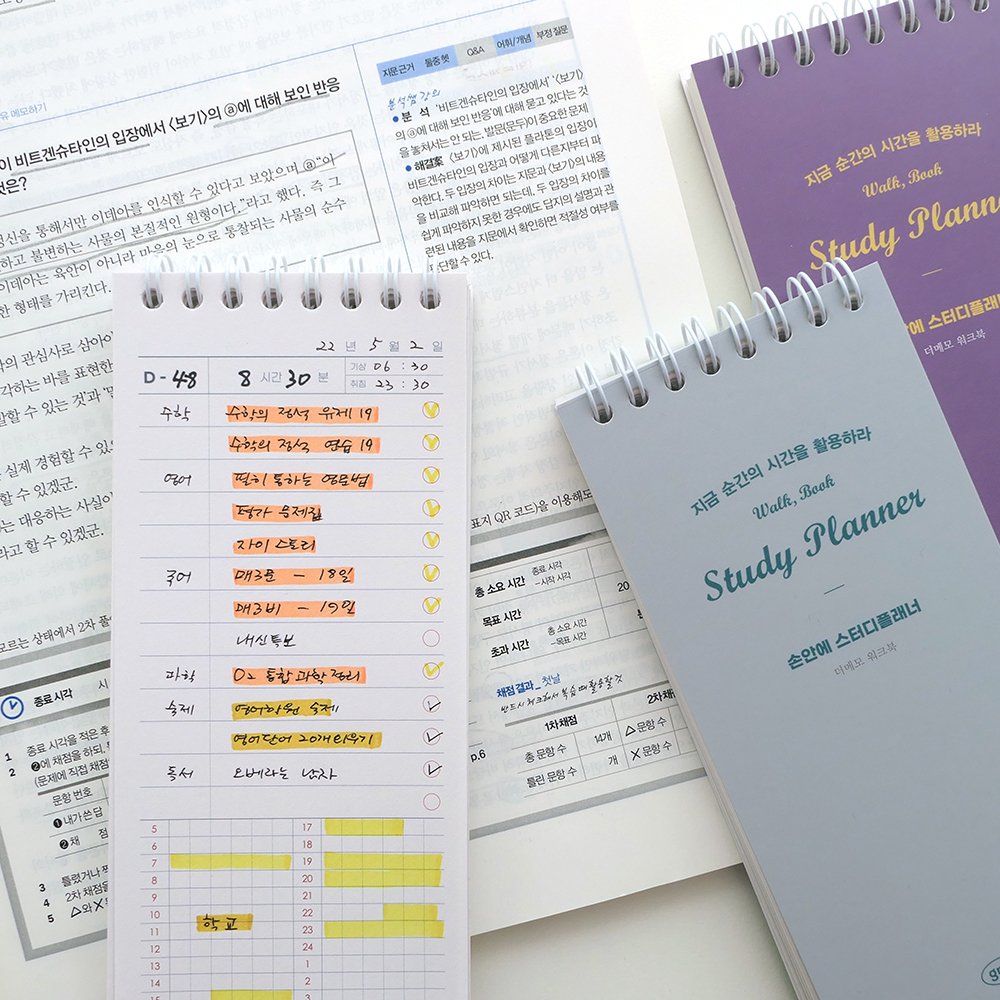 유 메모하기
이 비트겐슈타인의 입장에서 〈보기〉의 ⓐ에 대해 보인 반응
것은?
정신을 통해서만 이데아를 인식할 수 있다고 보았으며 ⓐ“이
하고 불변하는 사물의 본질적인 원형이다.”라고 했다. 즉 그
이데아는 육안이 아니라 마음의 눈으로 통찰되는 사물의 순수
한 형태를 가리킨다.
의 관심사로 삼아이
각하는 바를 표현한
발할 수 있는 것과 '말
실제 경험할 수 있으
할 수 있겠군.
는 대응하는 사실이
라고 할 수 있겠군.
모르는 상태에서 2차 풀
지문근거 둘중헷 Q&A 어휘/개념 부정 질문
분석쌤 강의
●분석 '비트겐슈타인의 입장에서' '〈보기〉
의 ⓐ에 대해 보인 반응'에 대해 묻고 있다는 것
을 놓쳐서는 안 되는, 발문(문두)이 중요한 문제
●해결案 〈보기〉에 제시된 플라톤의 입장이
비트겐슈타인의 입장과 어떻게 다른지부터 파
악한다. 두 입장의 차이는 지문과 〈보기〉의 내용
을 비교해 파악하면 되는데, 두 입장의 차이를
쉽게 파악하지 못한 경우에도 답지의 설명과 관
련된 내용을 지문에서 확인하면 적절성 여부를
단할 수 있다.
22 년 5 월 2 일
D-48 8 시간 30 분 기상 06 : 30
취침 23 : 30
수학 수학의 정석 유제 19
수학의 정석 연습 19
영어 뻔히 통하는 영문법
평가 문제집
자이 스토리
국어 매3문 - 18일
매3비 - 19일
내신특보
과학 O2 통합과학 정리
숙제 영어학원 숙제
영어단어 20개 외우기
독서 오베라는 남자
5 17
6 18
7 19
8 20
9 21
10 학교 22
11 23
12 24
13 1
14 2
15 3
표지 QR 코드)을 이용해도
총 소요 시간 종료 시각
-시작 시각 20
목표 시간
초과 시간 총 소요 시간
-목표 시간
채점결과_첫날
반드시 체크해서 복습 때 활용할 것
1차채점 2차채
p.6 총 문항 수 14개 △문항 수
틀린 문항 수 개 ✕문항 수
종료 시각 시
1 종료 시각을 적은 후
2 ❷에 채점을 하되,
(문제에 직접 채점
문항 번호
❶내가 쓴 답
❷채 점
3 틀렸거나
4 2차 채점을
5 △와 ✕
지금 순간의 시간을 활용하라
Walk, Book
Study Planner
손안에 스터디플래너
더메모 워크북
지금 순간의 시간을 활용하라
Walk, Book
Study Planne
안에 스터디플래
더메모 워크북